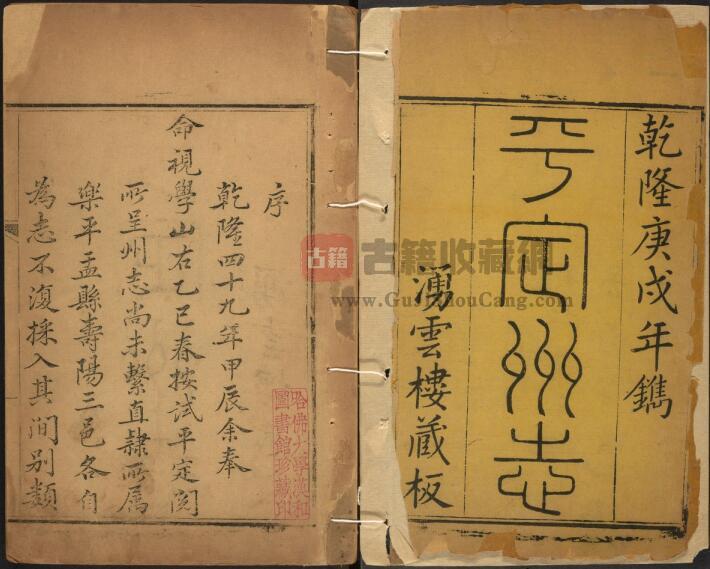 乾隆庚戌年鐫
平定州志
湧雲樓藏板
序
乾隆四十九年甲辰余奉
命視學山右乙巳春按試平定閱
所呈州志尚未繫直隸所屬
樂平盂縣壽陽三邑各自
為志不復採入其間別類
哈佛大學漢和
圖書館珍藏印
古籍
古籍收藏網
www.GujiShouCang.com